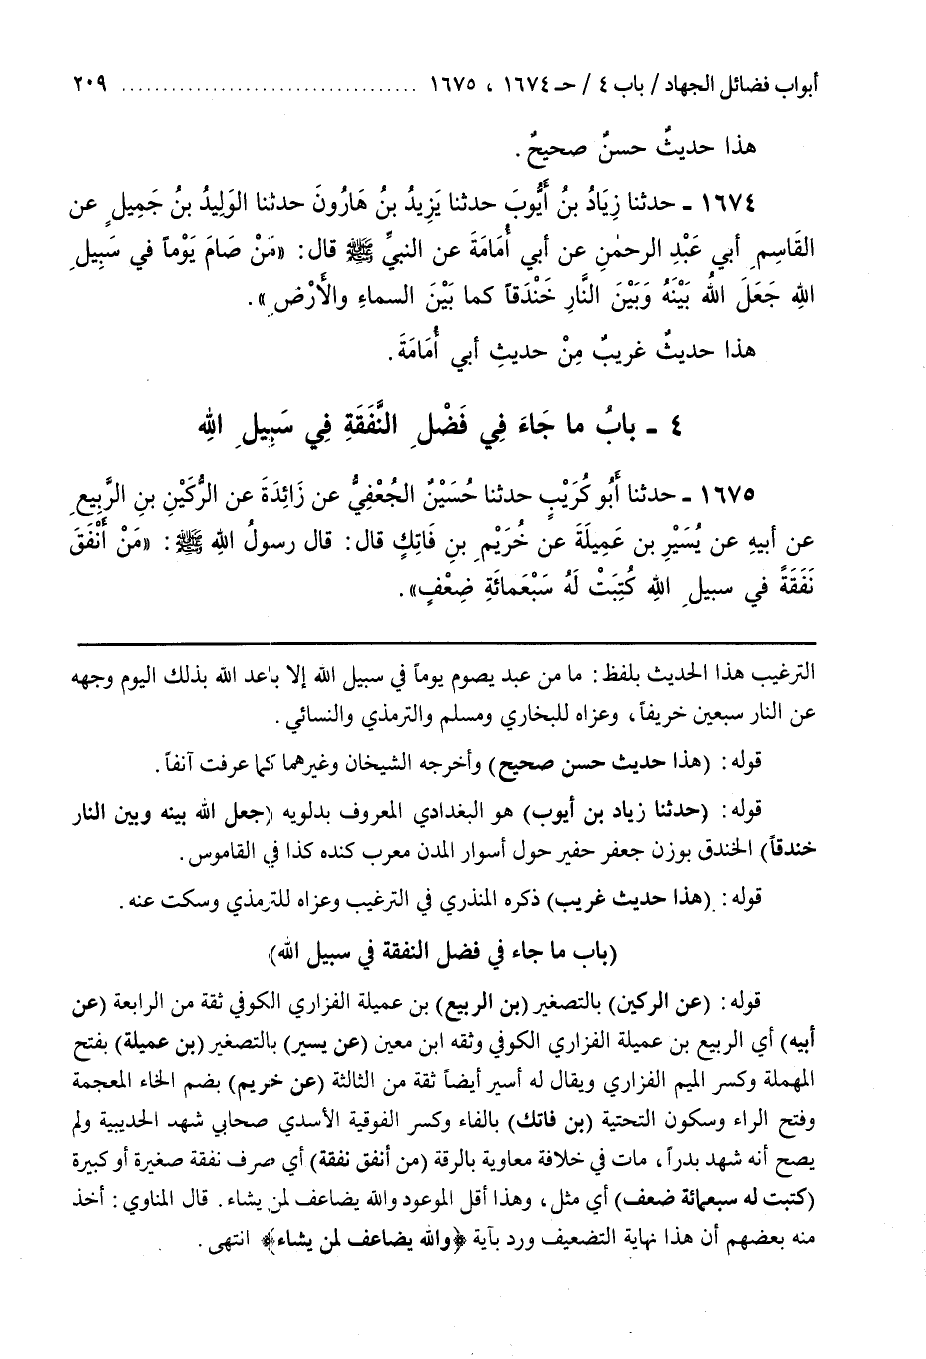 أبواب فضائل الجهاد / باب ٤ / حـ ١٦٧٤ ، ١٦٧٥ .................................... ٢٠٩
هذا حديثٌ حسنٌ صحيحٌ .
١٦٧٤ - حدثنا زِيَادُ بنُ أَيُّوبَ حدثنا يَزِيدُ بنُ هَارُونَ حدثنا الوَلِيدُ بنُ جَمِيلٍ عن
القَاسِمِ أبي عَبْدِ الرحمٰنِ عن أبي أُمَامَةَ عن النبيِّ ﷺ قال: «مَنْ صَامَ يَوْماً في سَبِيلِ
اللهِ جَعَلَ اللهُ بَيْنَهُ وَبَيْنَ النَّارِ خَنْدَقاً كما بَيْنَ السماءِ والأَرْضِ».
هذا حديثٌ غريبٌ مِنْ حديثِ أبي أُمَامَةَ.
٤ - بابُ ما جَاءَ فِي فَضْلِ النَّفَقَةِ فِي سَبِيلِ اللهِ
١٦٧٥ - حدثنا أَبُو كُرَيْبٍ حدثنا حُسَيْنٌ الجُعْفِيُّ عن زَائِدَةَ عن الرُّكَيْنِ بنِ الرَّبِيعِ
عن أبيهِ عن يُسَيْرِ بن عَمِيلَةَ عن خُرَيْمِ بنِ فَاتِكٍ قال: قال رسولُ اللهِ ﷺ: «مَنْ أَنْفَقَ
نَفَقَةً في سبيلِ اللهِ كُتِبَتْ لَهُ سَبْعَمائَةِ ضِعْفٍ».
الترغيب هذا الحديث بلفظ: ما من عبد يصوم يوماً في سبيل الله إلا باعد الله بذلك اليوم وجهه
عن النار سبعين خريفاً، وعزاه للبخاري ومسلم والترمذي والنسائي.
قوله: (هذا حديث حسن صحيح) وأخرجه الشيخان وغيرهما كما عرفت آنفاً.
قوله: (حدثنا زياد بن أيوب) هو البغدادي المعروف بدلويه (جعل الله بينه وبين النار
خندقاً) الخندق بوزن جعفر حفير حول أسوار المدن معرب كنده كذا في القاموس.
قوله: (هذا حديث غريب) ذكره المنذري في الترغيب وعزاه للترمذي وسكت عنه.
(باب ما جاء في فضل النفقة في سبيل الله)
قوله: (عن الركين) بالتصغير (بن الربيع) بن عميلة الفزاري الكوفي ثقة من الرابعة (عن
أبيه) أي الربيع بن عميلة الفزاري الكوفي وثقه ابن معين (عن يسير) بالتصغير (بن عميلة) بفتح
المهملة وكسر الميم الفزاري ويقال له أسير أيضاً ثقة من الثالثة (عن خريم) بضم الخاء المعجمة
وفتح الراء وسكون التحتية (بن فاتك) بالفاء وكسر الفوقية الأسدي صحابي شهد الحديبية ولم
يصح أنه شهد بدراً، مات في خلافة معاوية بالرقة (من أنفق نفقة) أي صرف نفقة صغيرة أو كبيرة
(كتبت له سبعمائة ضعف) أي مثل، وهذا أقل الموعود والله يضاعف لمن يشاء. قال المناوي: أخذ
منه بعضهم أن هذا نهاية التضعيف ورد بآية ﴿والله يضاعف لمن يشاء﴾ انتهى.